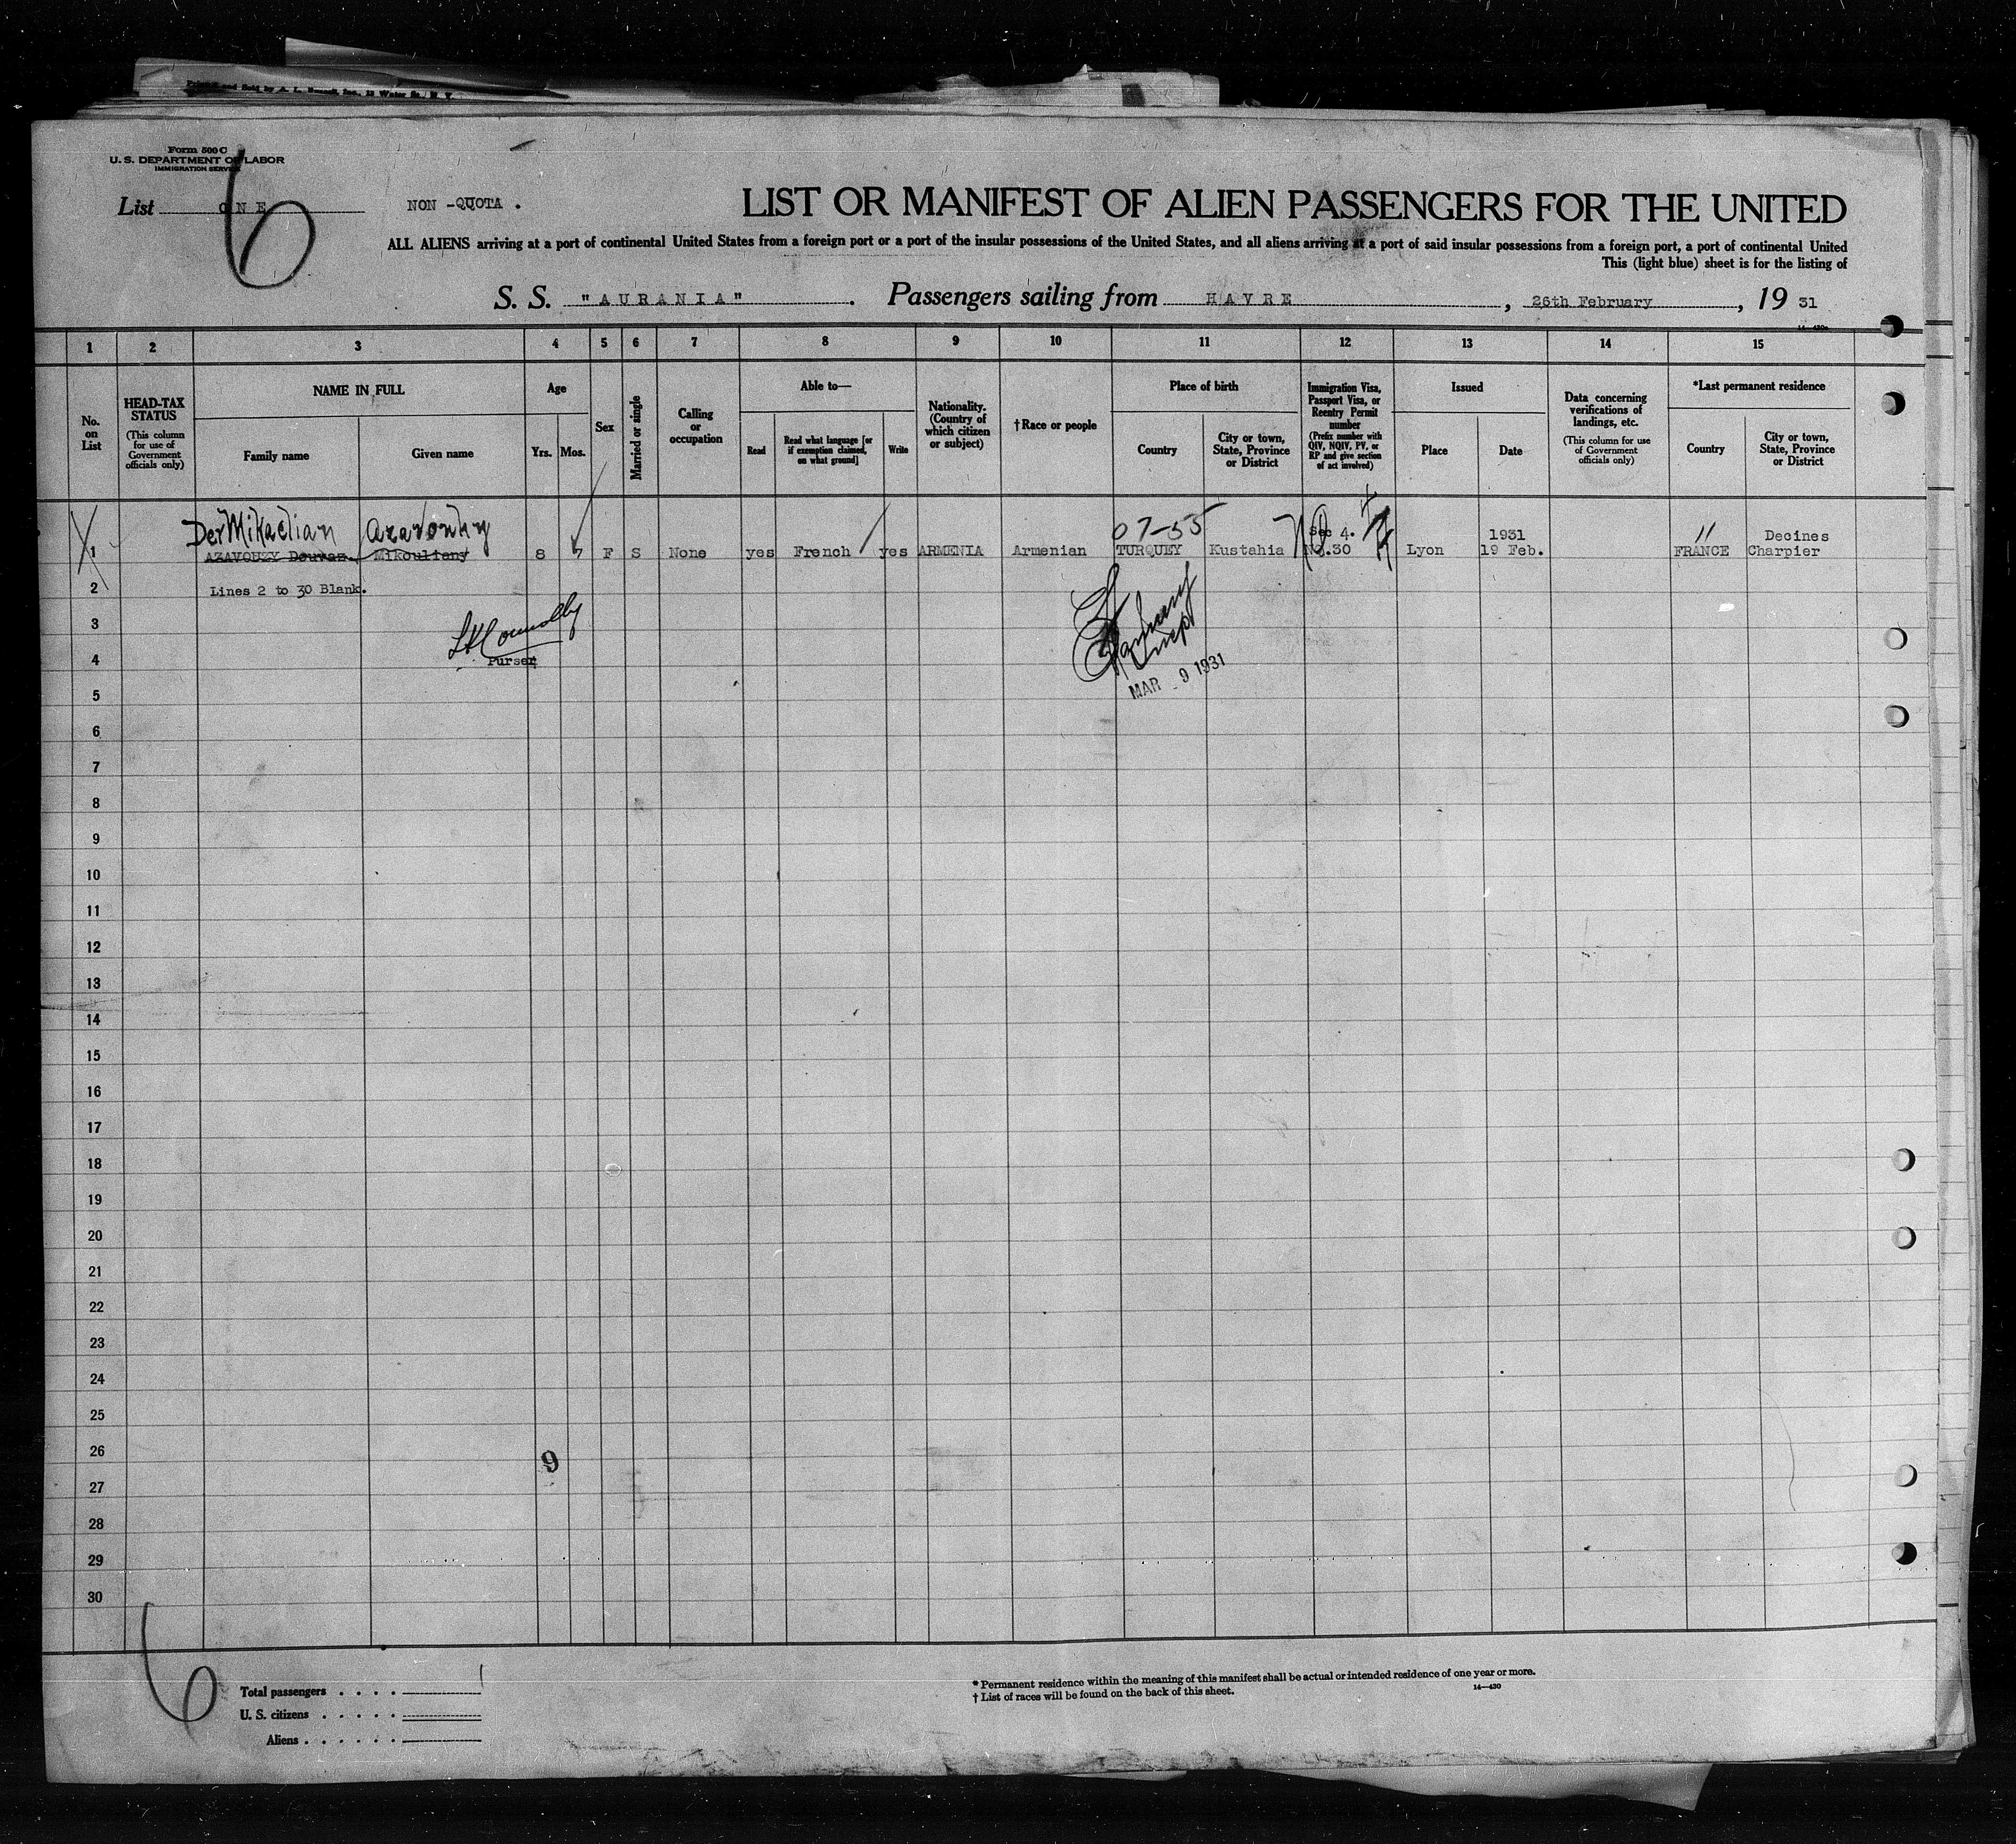 Printed and Sold by A. L. Russell, Inc., 12 Water St., N. Y.
Form 500 C
U. S. DEPARTMENT OF LABOR
IMMIGRATION SERVICE
6
List ONE
NON -QUOTA .
LIST OR MANIFEST OF ALIEN PASSENGERS FOR THE UNITED
ALL ALIENS arriving at a port of continental United States from a foreign port or a port of the insular possessions of the United States, and all aliens arriving at a port of said insular possessions from a foreign port, a port of continental United
This (light blue) sheet is for the listing of
S. S. "AURANIA" . Passengers sailing from HAVRE , 26th February , 19 31
1 2 3 4 5 6 7 8 9 10 11 12 13 14 15
No. on List
HEAD-TAX STATUS
(This column for use of Government officials only)
NAME IN FULL
Family name
Given name
Age
Yrs.
Mos.
Sex
Married or single
Calling or occupation
Able to—
Read
Read what language [or if exemption claimed, on what ground]
Write
Nationality. (Country of which citizen or subject)
†Race or people
Place of birth
Country
City or town, State, Province or District
Immigration Visa, Passport Visa, or Reentry Permit number
(Prefix number with QIV, NQIV, PV, or RP and give section of act involved)
Issued
Place
Date
Data concerning verifications of landings, etc.
(This column for use of Government officials only)
*Last permanent residence
Country
City or town, State, Province or District
DerMikaelian Azavouhy 07-55 Sec 4. 1931 Decines
1 AZAVOUZY Douvaz. Mikouliany 8 7 F S None yes French yes ARMENIA Armenian TURQUEY Kustahia No.30 Lyon 19 Feb. FRANCE Charpier
2 Lines 2 to 30 Blank.
3
4 Purser
MAR 9 1931
5
6
7
8
9
10
11
12
13
14
15
16
17
18
19
20
21
22
23
24
25
26 9
27
28
29
30
6
Total passengers . . . . 1
U. S. citizens . . . . .
Aliens . . . . . .
* Permanent residence within the meaning of this manifest shall be actual or intended residence of one year or more.
† List of races will be found on the back of this sheet.
14—430